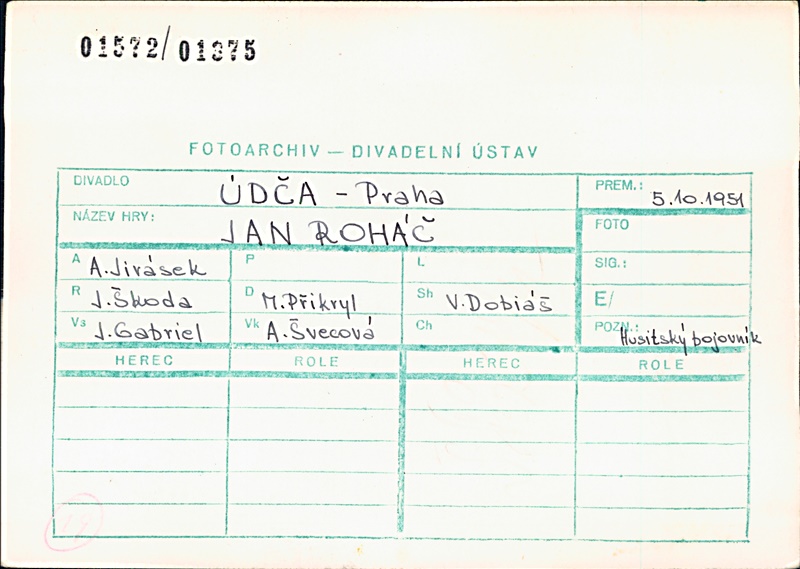 01572/01375
FOTOARCHIV — DIVADELNÍ ÚSTAV
DIVADLO ÚDČA - Praha PREM.: 5.10.1951
NÁZEV HRY: JAN ROHÁČ FOTO
A A.Jirásek P L SIG.:
R J.Škoda D M.Přikryl Sh V.Dobiáš E/
Vs J.Gabriel Vk A.Švecová Ch POZN.: Husitský bojovník
HEREC ROLE HEREC ROLE